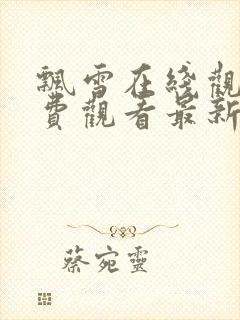 飄雪在綫觀
費觀看最新
蔡宛靈